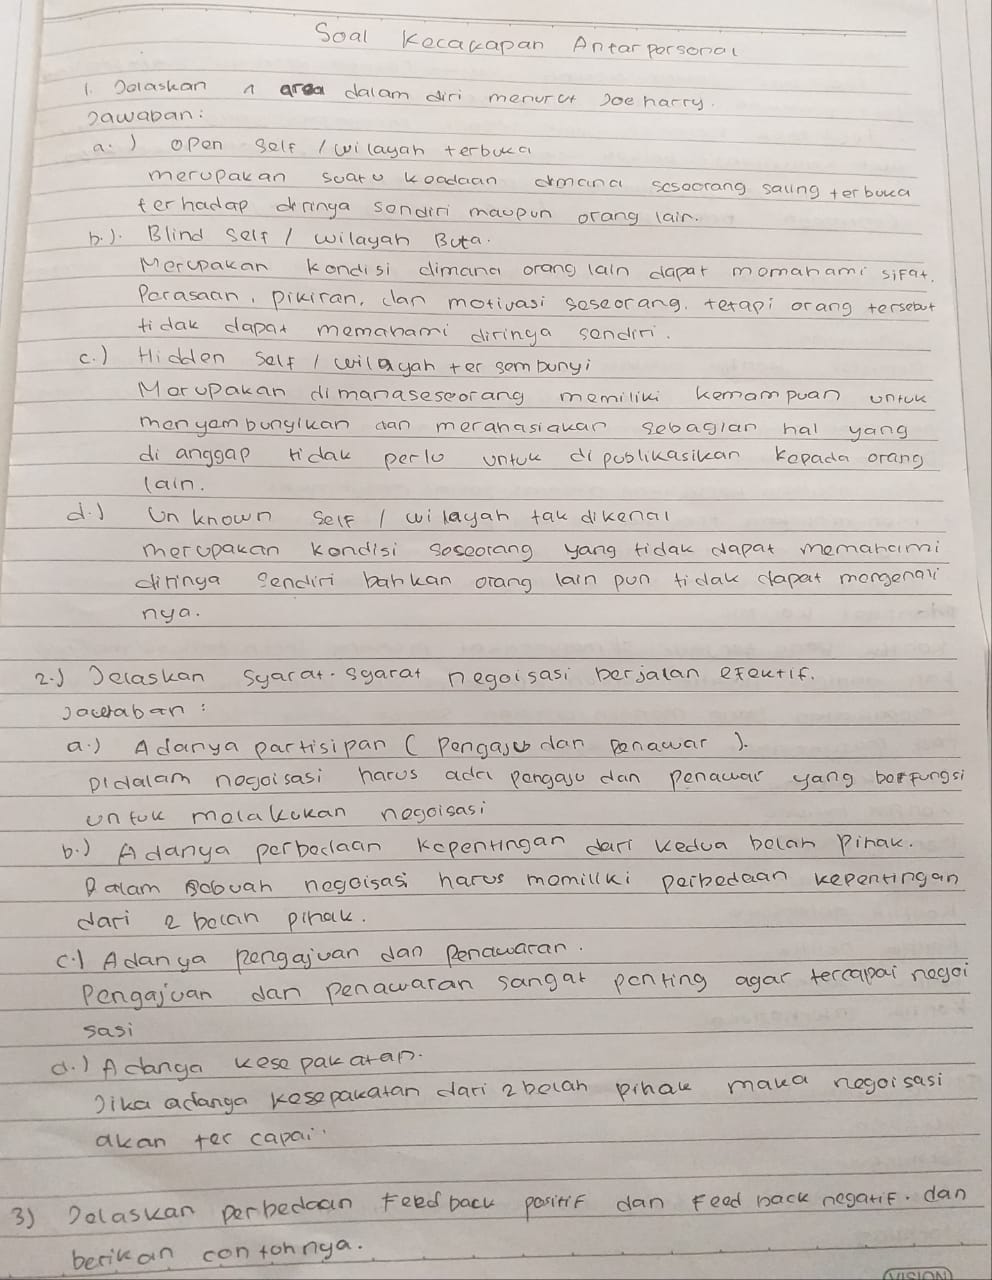 Soal Kecakapan Antar personal
1. Jelaskan 4 area dalam diri menurut Joe harry.
Jawaban:
a.) open self / wilayah terbuka
merupakan suatu keadaan dimana seseorang saling terbuka
terhadap diringa sendiri maupun orang lain.
b.). Blind self / wilayah Buta.
Merupakan kondisi dimana orang lain dapat memahami sifat.
Perasaan, pikiran, dan motivasi seseorang. tetapi orang tersebut
tidak dapat memahami diringa sendiri.
c.) Hidden self / wilayah tersembunyi
Merupakan dimanaseseorang memiliki kemampuan untuk
menyembunyikan dan merahasiakan sebagian hal yang
di anggap tidak perlu untuk di publikasikan kepada orang
lain.
d.) Un known self / wilayah tak dikenal
merupakan kondisi seseorang yang tidak dapat memahami
dirinya sendiri bahkan orang lain pun tidak dapat mengenali
nya.
2.) Jelaskan syarat-syarat negoisasi berjalan efektif.
Jawaban:
a.) Adanya partisipan (Pengaju dan penawar).
Didalam negoisasi harus ada pengaju dan penawar yang berfungsi
untuk melakukan negoisasi
b.) Adanya perbedaan kepentingan dari kedua belah Pihak.
Dalam sebuah negoisasi harus memiliki perbedaan kepentingan
dari 2 belah pihak.
c.) Adanya pengajuan dan Penawaran.
Pengajuan dan penawaran sangat penting agar tercapai negoi
sasi
d.) Adanga kesepakatan.
Jika adanga kesepakatan dari 2 belah pihak maka negoisasi
akan tercapai.
3) Jelaskan perbedaan Feedback positif dan Feed back negatif. dan
berikan contohnya.
VISION